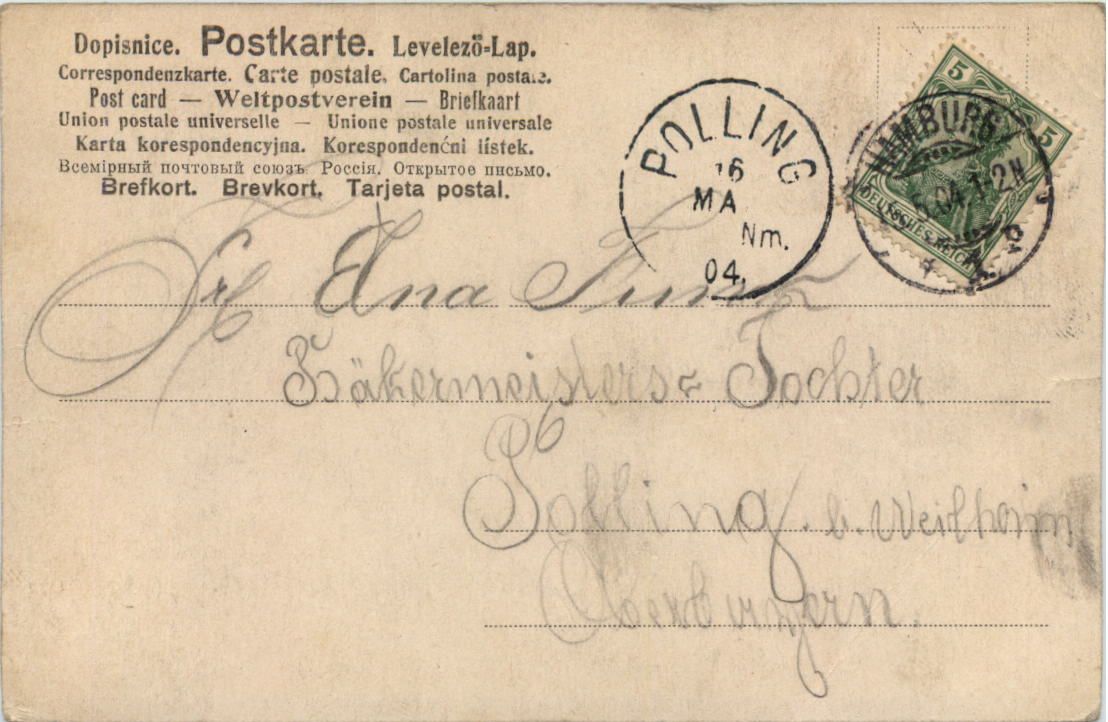 Dopisnice. Postkarte. Levelező-Lap.
Correspondenzkarte. Carte postale. Cartolina postale.
Post card — Weltpostverein — Briefkaart
Union postale universelle — Unione postale universale
Karta korespondencyjna. Korespondenčni listek.
Всемірный почтовый союзъ. Россія. Открытое письмо.
Brefkort. Brevkort. Tarjeta postal.
POLLING
16
MA
Nm.
04.
HAMBURG
5.04.1-2N
5 5
DEUTSCHES REICH
Frl Ena
Bäkermeisters Tochter
Polling. b. Weilheim
Oberbayern.